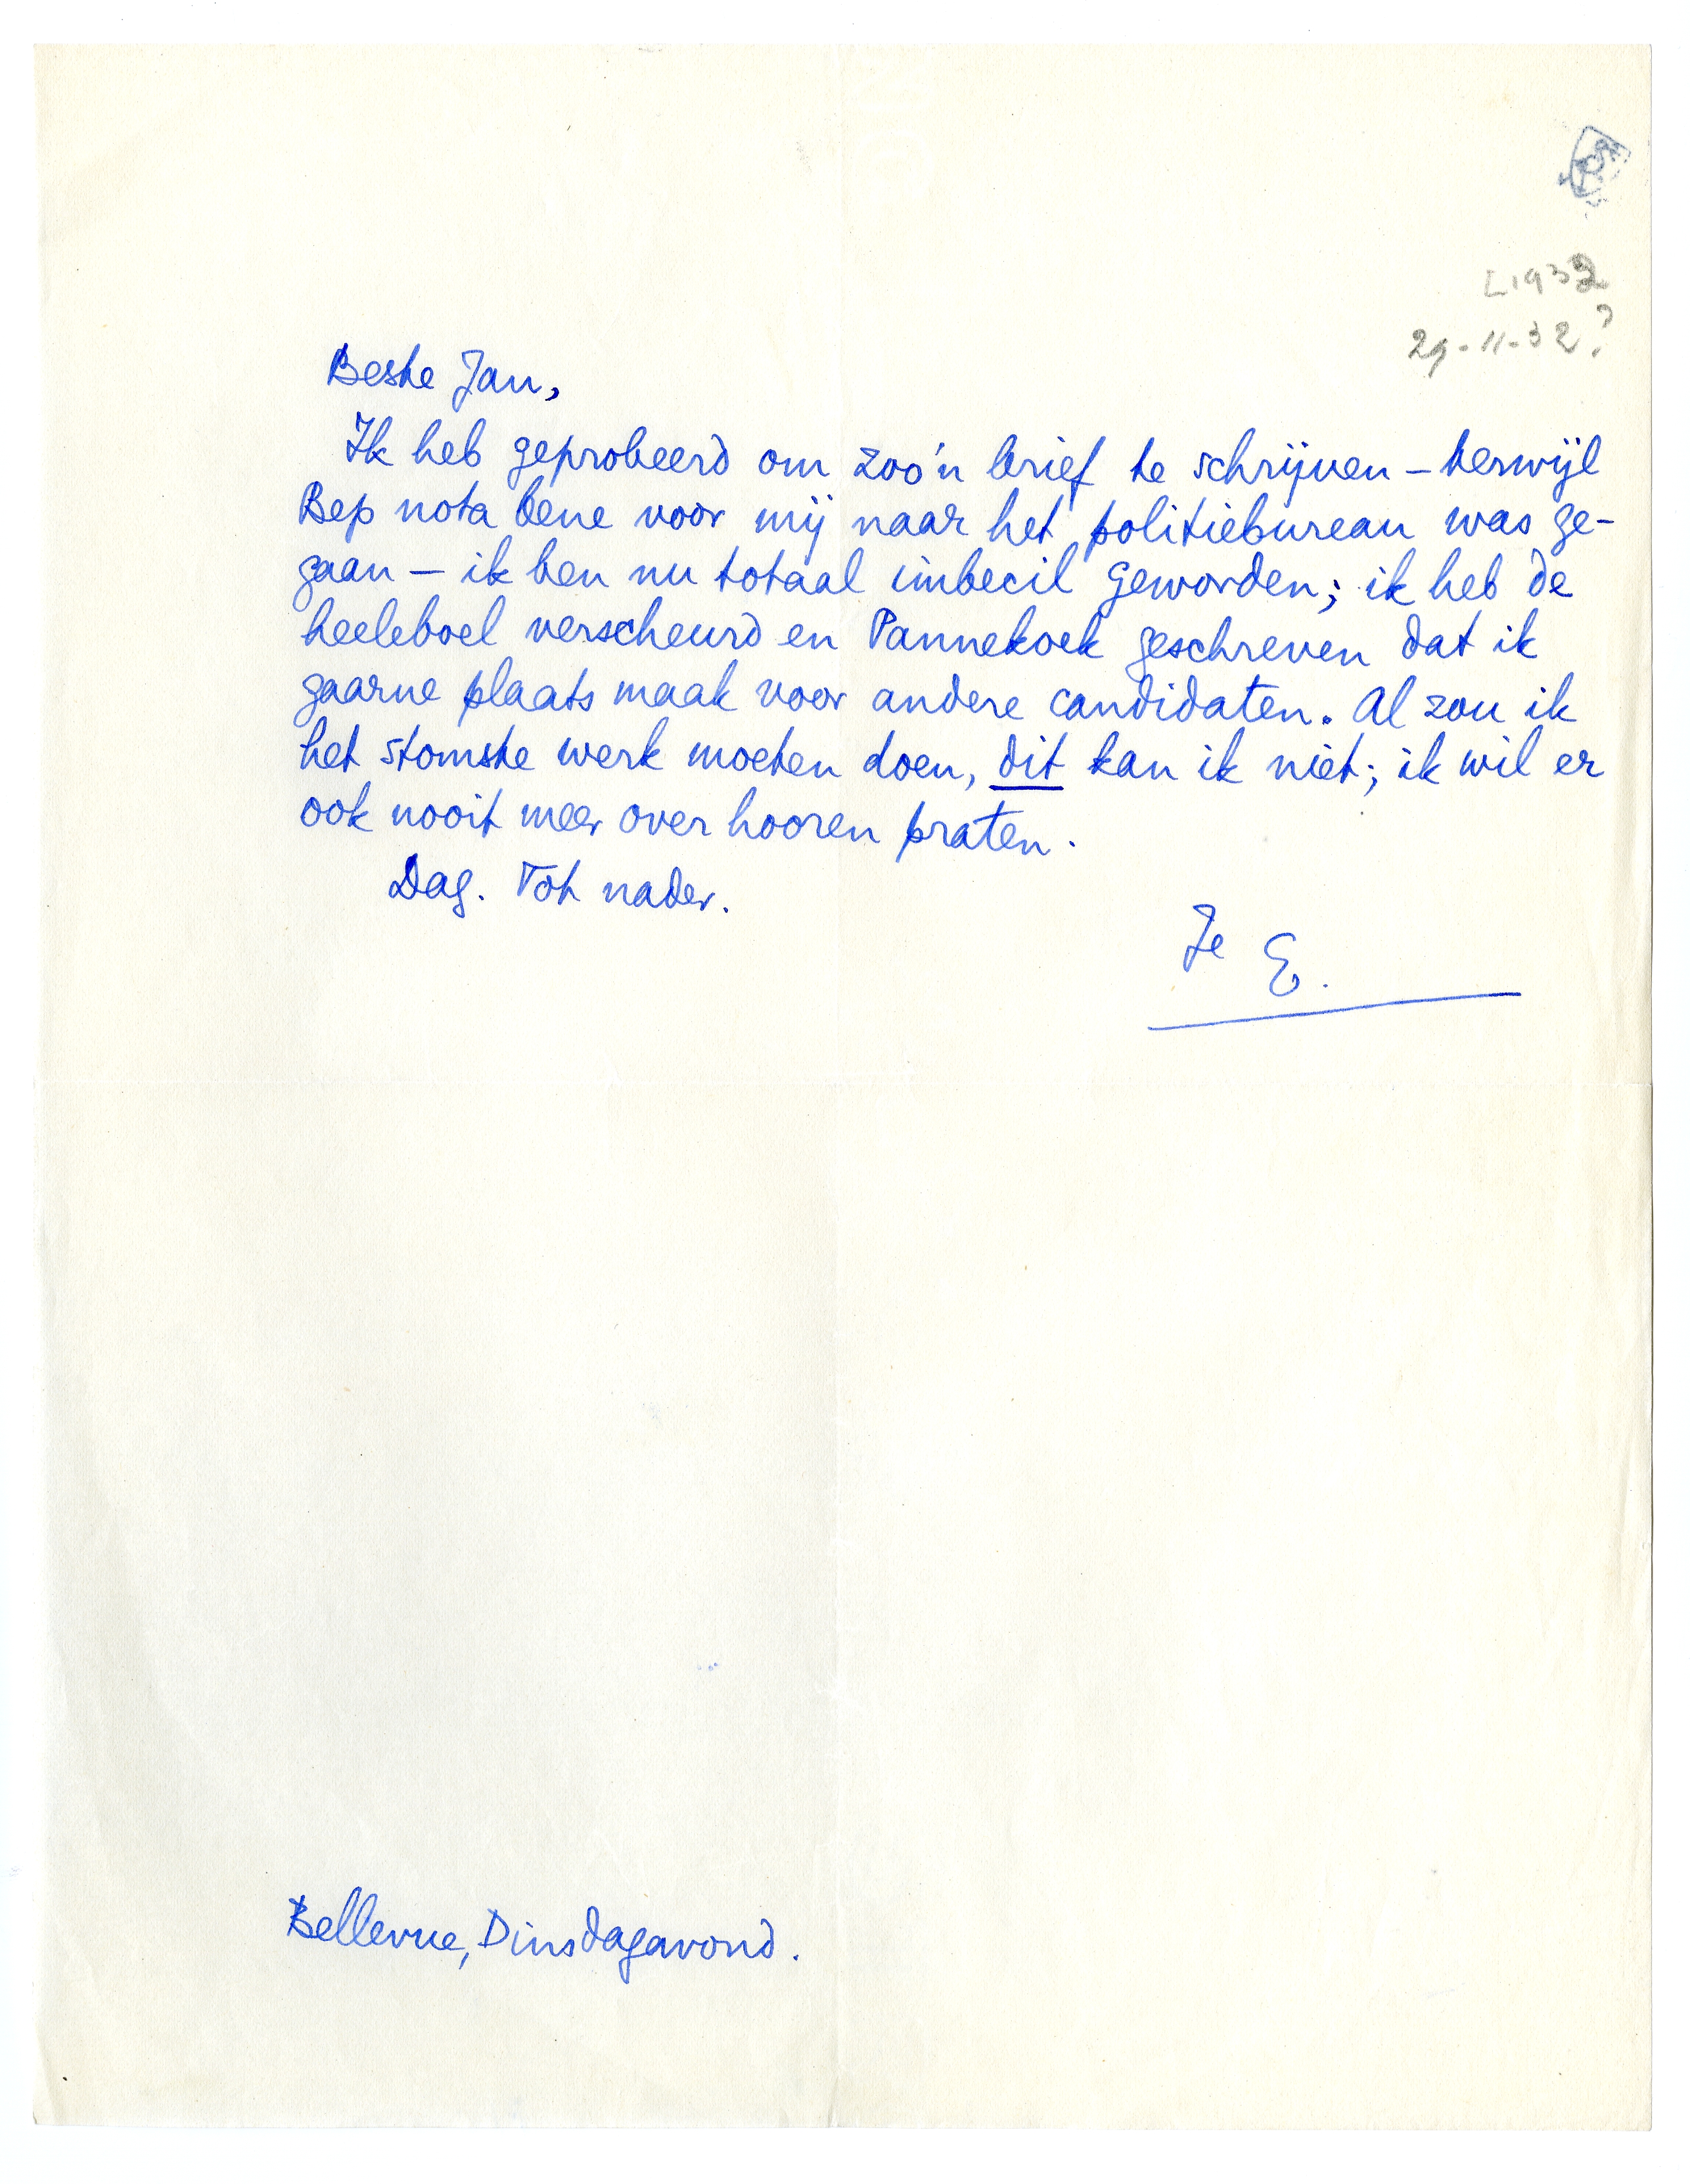 L1932
29-11-32?
Beste Jan,
Ik heb geprobeerd om zoo'n brief te schrijven – terwijl
Bep nota bene voor mij naar het politiebureau was ge-
gaan – ik ben nu totaal imbecil geworden; ik heb de
heeleboel verscheurd en Pannekoek geschreven dat ik
gaarne plaats maak voor andere candidaten. Al zou ik
het stomste werk moeten doen, dit kan ik niet; ik wil er
ook nooit meer over hooren praten.
Dag. Tot nader.
Je E.
Bellevue, Dinsdagavond.